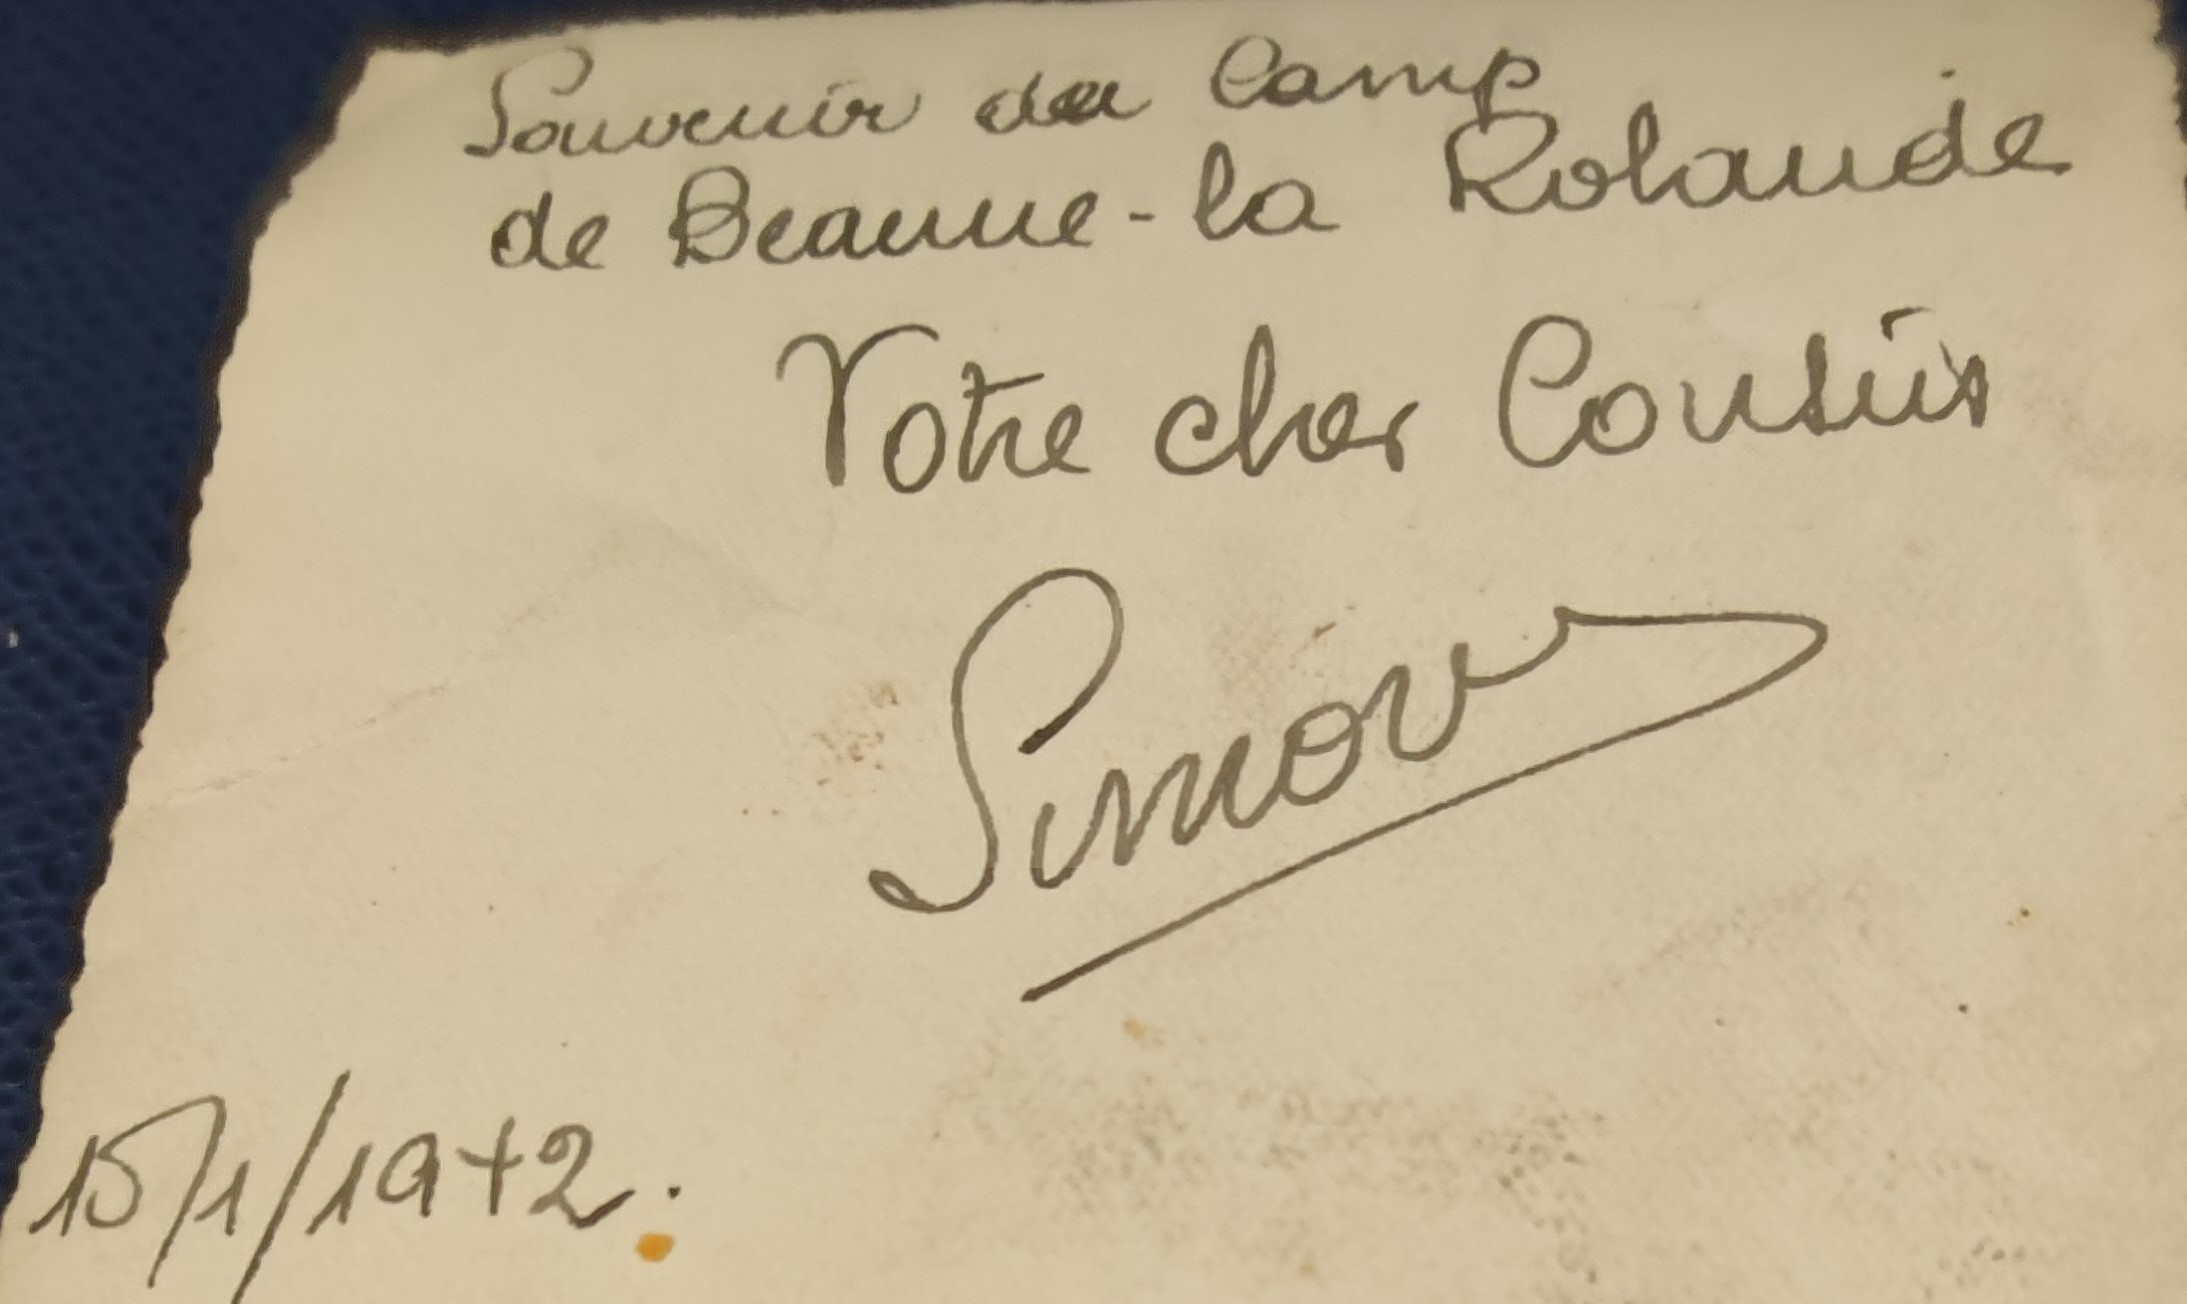 Souvenir du Camp
de Beaune-la Rolande
Votre cher Cousin
Simon
15/1/1942.